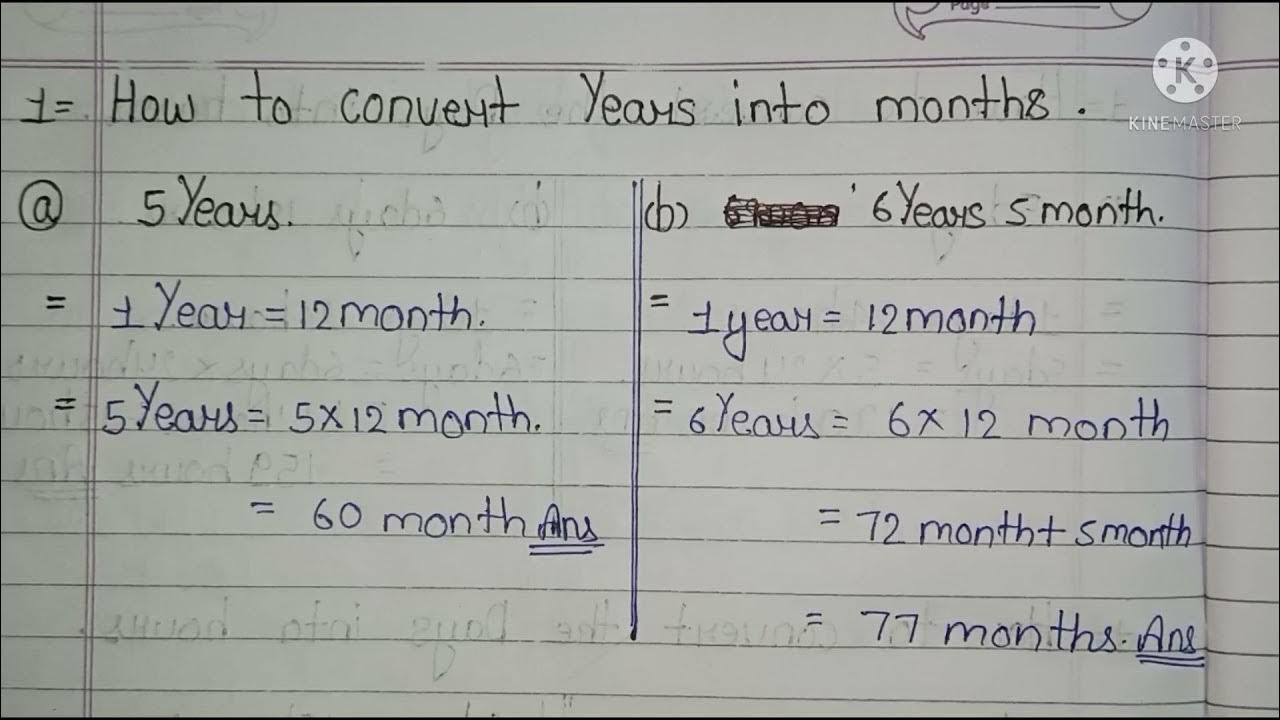 Page
1= How to convert Years into months.
ⓐ 5 Years.
= 1 Year = 12 month.
= 5 Years = 5 × 12 month.
= 60 month Ans
(b) 6 Years 5 month.
= 1 year = 12 month
= 6 Years = 6 × 12 month
= 72 month + 5 month
= 77 months. Ans
K
KINEMASTER